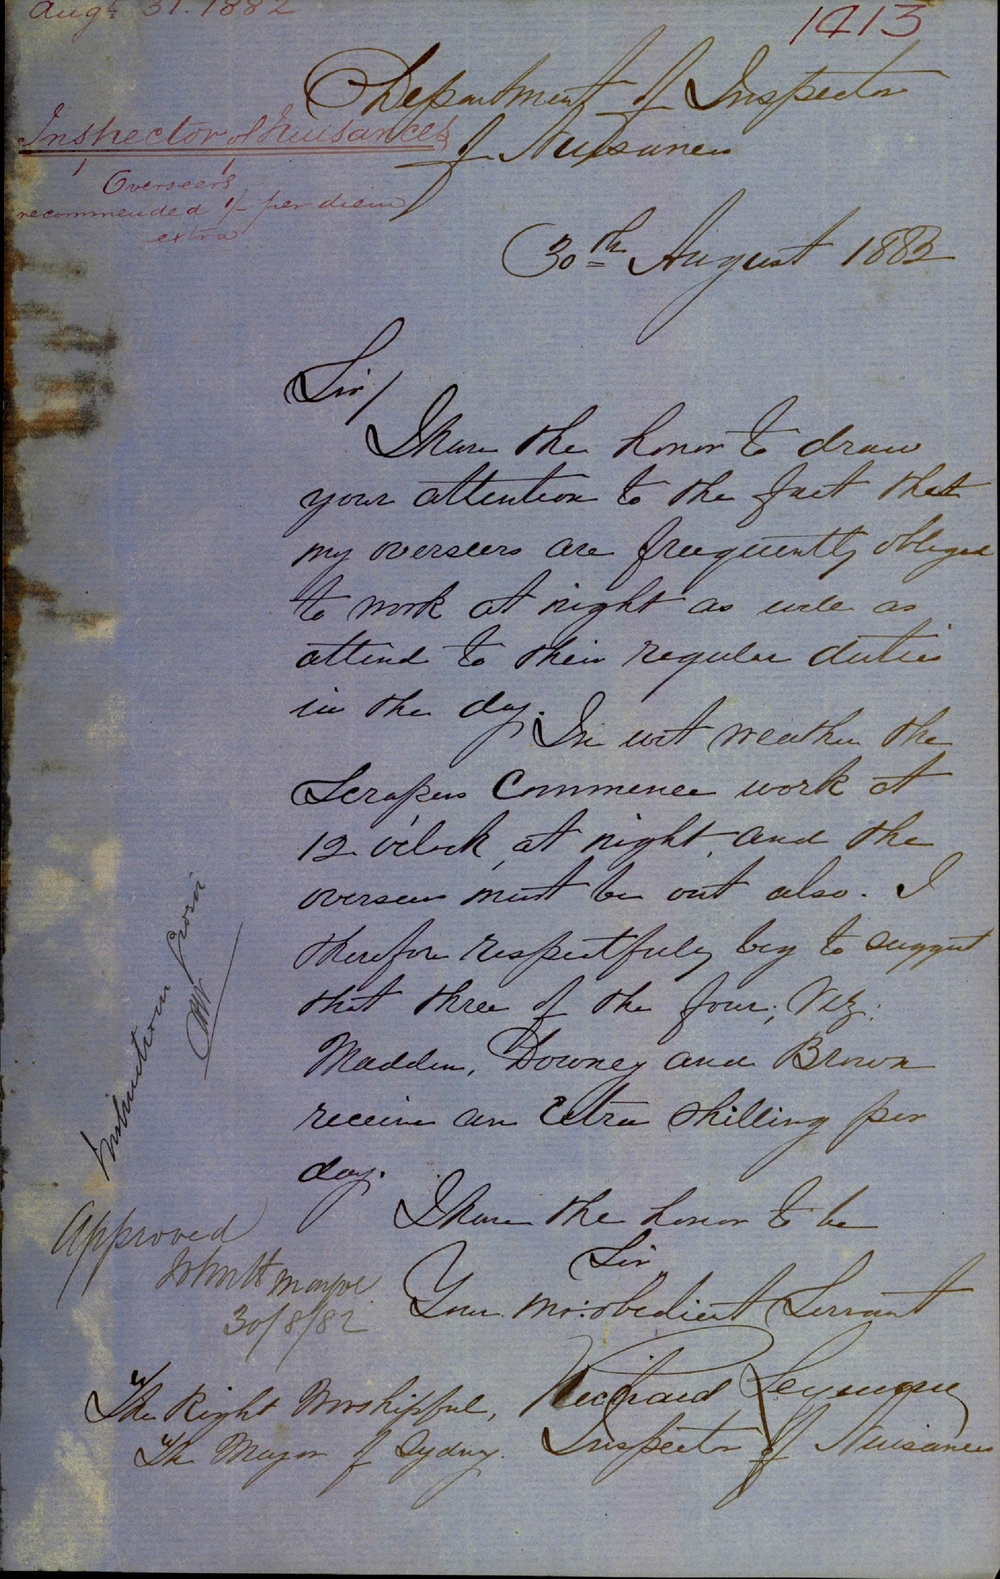 Augt 31. 1882
1413
Department of Inspector
of Nuisances
Inspector of Nuisances
Overseers
recommended 1/- per diem
extra
30th August 1882
Sir/
I have the honor to draw
your attention to the fact that
my overseers are frequently obliged
to work at night as well as
attend to their regular duties
in the day. In wet weather the
Scrapers Commence work at
12 o'clock at night and the
overseers must be out also. I
therefore respectfully beg to suggest
that three of the four; Viz:
Madden, Downey and Brown
receive an Extra Shilling per
day.
I have the honor to be
Sir
Your mo: obedient Servant
Richard Seymour
Inspector of Nuisances
The Right Worshipful,
The Mayor of Sydney.
Approved
John H mayor
30/8/82
Instructions